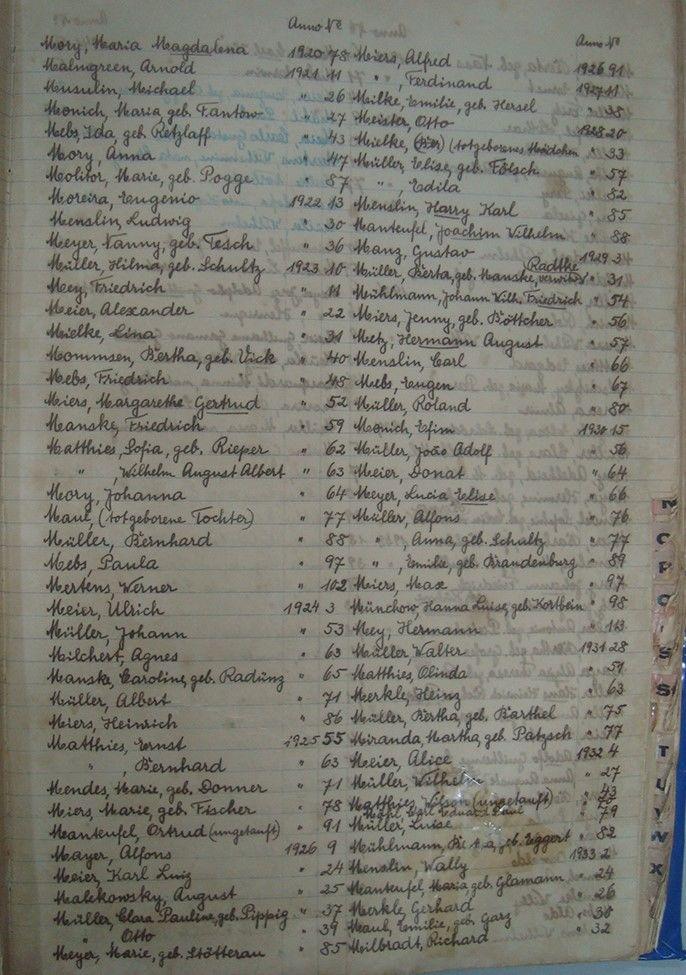 Anno No
Mory, Maria Magdalena 1920 78
Malmgreen, Arnold 1921 11
Mensulin, Michael " 26
Monich, Maria geb. Fantow " 27
Mebs, Ida, geb. Retzlaff " 43
Mory, Anna " 47
Molitor, Marie, geb. Pogge " 87
Moreira, Eugenio 1922 13
Menslin, Ludwig " 30
Meyer, Nanny, geb. Tesch " 36
Müller, Hilma, geb. Schultz 1923 10
Mey, Friedrich " 11
Meier, Alexander " 22
Mielke, Lina " 31
Mommsen, Bertha, geb. Vick " 40
Mebs, Friedrich " 48
Miers, Margarethe Gertrud " 52
Manske, Friedrich " 59
Matthies, Sofia, geb. Rieper " 62
" , Wilhelm August Albert " 63
Mory, Johanna " 64
Maul, (totgeborene Tochter) " 77
Müller, Bernhard " 88
Mebs, Paula " 97
Mertens, Werner " 102
Meier, Ulrich 1924 3
Müller, Johann " 53
Milchert, Agnes " 63
Manske, Caroline, geb. Radünz " 65
Müller, Albert " 71
Miers, Heinrich " 86
Matthies, Ernst 1925 55
" , Bernhard " 63
Mendes, Marie, geb. Donner " 71
Miers, Marie, geb. Fischer " 78
Manteufel, Ortrud (ungetauft) " 91
Mayer, Alfons 1926 9
Meier, Karl Luiz " 24
Malekowsky, August " 25
Müller, Clara Pauline, geb. Pippig " 37
" Otto " 39
Meyer, Marie, geb. Stötterau " 85
Anno No
Miers, Alfred 1926 91
" , Ferdinand 1927 11
Milke, Emilie, geb. Hersel " 38
Meister, Otto 1928 20
Mielke, (totgeborenes Mädchen " 33
Müller, Elise, geb. Fölsch " 57
" , Edila " 82
Menslin, Harry Karl " 85
Manteufel, Joachim Wilhelm " 88
Manz, Gustav 1929 3
Radtke
Müller, Berta, geb. Manske, verwitw. " 31
Mühlmann, Johann Wilh. Friedrich " 54
Miers, Jenny, geb. Böttcher " 56
Metz, Hermann August " 57
Menslin, Carl " 66
Mebs, Eugen " 67
Müller, Roland " 80
Monich, Efim 1930 15
Müller, João Adolf " 56
Meier, Donat " 64
Meyer, Lucia Elise " 66
Müller, Alfons " 76
" , Anna, geb. Schultz " 77
" , Emilie, geb. Brandenburg " 89
Miers, Max " 97
Münchow, Hanna Luise, geb. Kortbein " 98
Mey, Hermann " 113
Müller, Walter 1931 28
Matthies, Olinda " 51
Merkle, Heinz " 63
Müller, Bertha, geb. Barthel " 75
Miranda, Martha, geb. Patzsch " 77
Meier, Alice 1932 4
Müller, Wilhelm " 27
Matthies, Wilson (ungetauft) " 43
Müller, Luise " 79
Mühlmann, geb. Eggert " 82
Menslin, Wally 1933 2
Manteufel, Maria, geb. Glamann " 24
Merkle, Gerhard " 26
Maul, Emilie, geb. Garz " 30
Milbradt, Richard " 32
N
O
P
Q
S
T
U
V
W
X